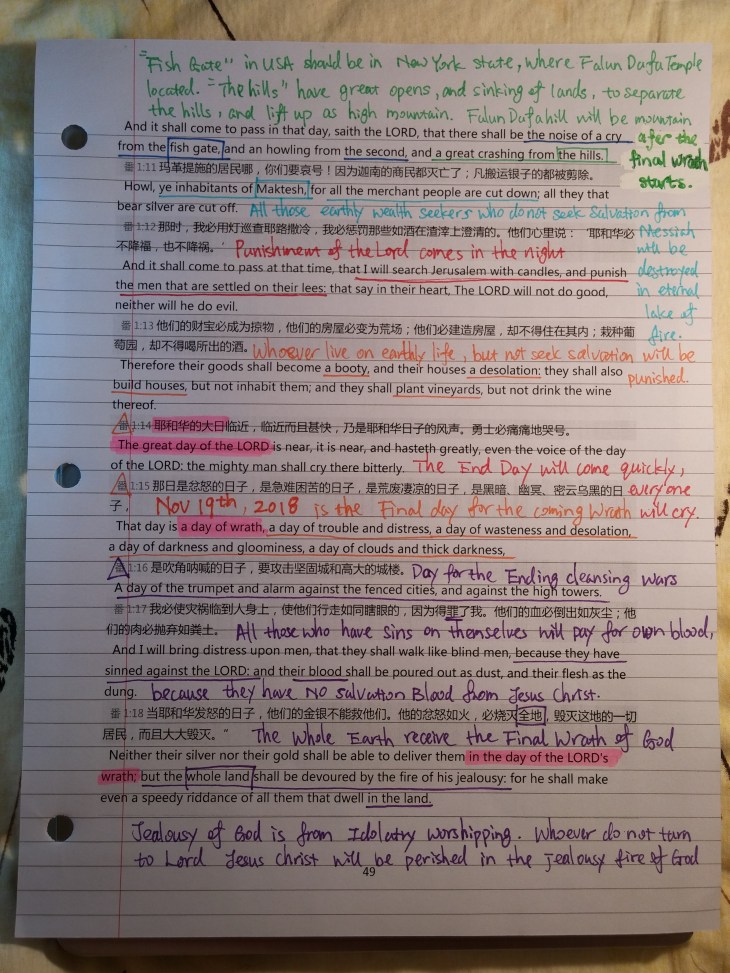 "Fish Gate" in USA should be in New York state, where Falun Dafa Temple
located. "The hills" have great opens, and sinking of lands, to separate
the hills, and lift up as high mountain. Falun Dafa hill will be mountain
And it shall come to pass in that day, saith the LORD, that there shall be the noise of a cry
after the
from the fish gate, and an howling from the second, and a great crashing from the hills.
final wrath
starts.
番 1:11 玛革提施的居民哪，你们要哀号！因为迦南的商民都灭亡了；凡搬运银子的都被剪除。
Howl, ye inhabitants of Maktesh, for all the merchant people are cut down; all they that
bear silver are cut off. All those earthly wealth seekers who do not seek Salvation from
番 1:12 那时，我必用灯巡查耶路撒冷，我必惩罚那些如酒在渣滓上澄清的。他们心里说：‘耶和华必
Messiah
不降福，也不降祸。’ Punishment of the Lord comes in the night
will be
And it shall come to pass at that time, that I will search Jerusalem with candles, and punish
destroyed
the men that are settled on their lees: that say in their heart, The LORD will not do good,
in eternal
neither will he do evil.
lake of
番 1:13 他们的财宝必成为掠物，他们的房屋必变为荒场；他们必建造房屋，却不得住在其内；栽种葡
fire.
萄园，却不得喝所出的酒。 Whoever live on earthly life, but not seek salvation will be
punished.
Therefore their goods shall become a booty, and their houses a desolation: they shall also
build houses, but not inhabit them; and they shall plant vineyards, but not drink the wine
thereof.
番 1:14 耶和华的大日临近，临近而且甚快，乃是耶和华日子的风声。勇士必痛痛地哭号。
The great day of the LORD is near, it is near, and hasteth greatly, even the voice of the day
of the LORD: the mighty man shall cry there bitterly. The End Day will come quickly,
番 1:15 那日是忿怒的日子，是急难困苦的日子，是荒废凄凉的日子，是黑暗、幽冥、密云乌黑的日 everyone
子， Nov 19th, 2018 is the Final day for the coming Wrath will cry.
That day is a day of wrath, a day of trouble and distress, a day of wasteness and desolation,
a day of darkness and gloominess, a day of clouds and thick darkness,
番 1:16 是吹角呐喊的日子，要攻击坚固城和高大的城楼。 Day for the Ending cleansing wars
A day of the trumpet and alarm against the fenced cities, and against the high towers.
番 1:17 我必使灾祸临到人身上，使他们行走如同瞎眼的，因为得罪了我。他们的血必倒出如灰尘；他
们的肉必抛弃如粪土。 All those who have sins on themselves will pay for own blood,
And I will bring distress upon men, that they shall walk like blind men, because they have
sinned against the LORD: and their blood shall be poured out as dust, and their flesh as the
dung. because they have NO salvation Blood from Jesus Christ.
番 1:18 当耶和华发怒的日子，他们的金银不能救他们。他的忿怒如火，必烧灭全地，毁灭这地的一切
居民，而且大大毁灭。” The Whole Earth receive the Final Wrath of God
Neither their silver nor their gold shall be able to deliver them in the day of the LORD's
wrath; but the whole land shall be devoured by the fire of his jealousy: for he shall make
even a speedy riddance of all them that dwell in the land.
Jealousy of God is from Idolatry worshipping. Whoever do not turn
to Lord Jesus Christ will be perished in the Jealousy fire of God
49